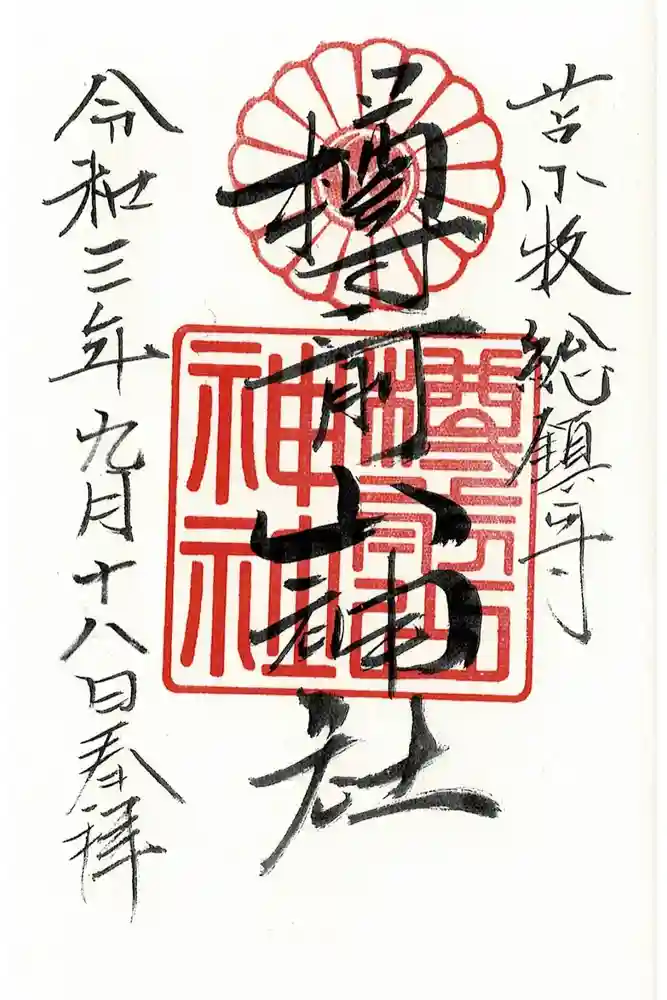 苫小牧総鎮守
樽前山神社
樽前山神社
令和三年九月十八日奉拝